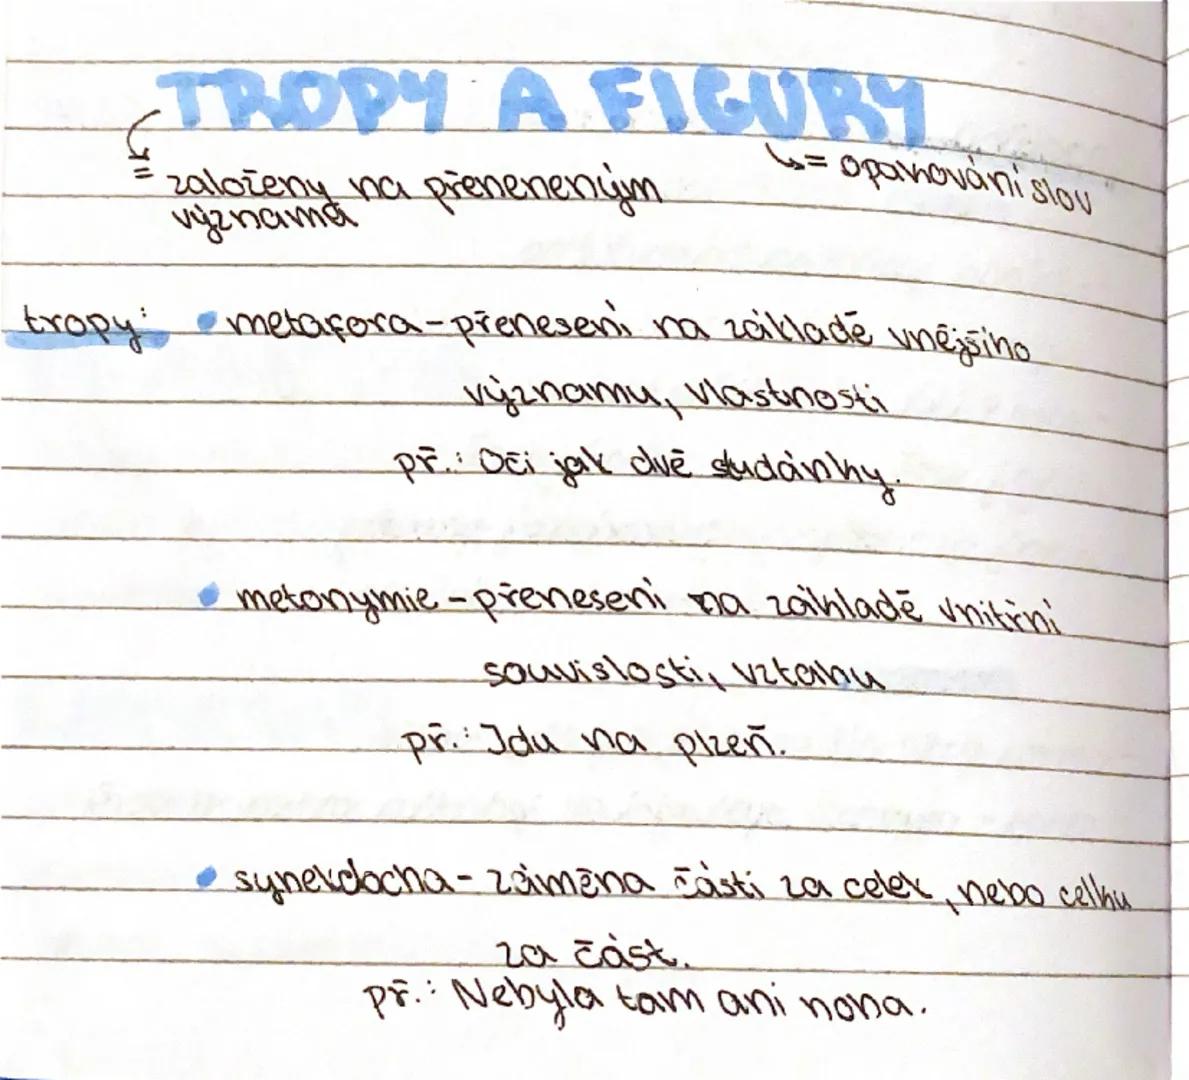 TROPY A FIGURY
= založeny na přeneneným
význama
↳= opakování slov
tropy: • metafora - přenesení na základě vnějšího
významu, vlastnosti
př.: Oči jak dvě studánky.
• metonymie - přenesení na základě vnitřní
souvislosti, vztahu
př.: Jdu na plzeň.
• synekdocha - záměna části za celek, nebo celku
za část.
př.: Nebyla tam ani noha.